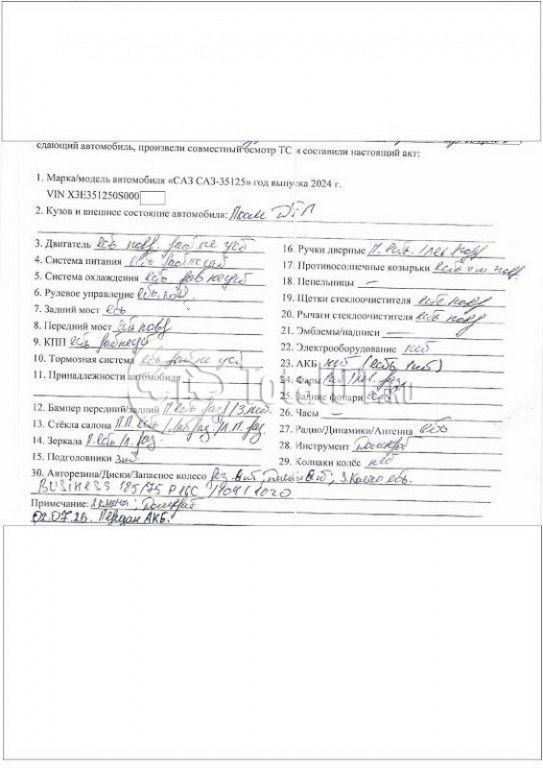 сдающий автомобиль, произвели совместный осмотр ТС и составили настоящий акт:
1. Марка/модель автомобиля «САЗ САЗ-35125» год выпуска 2024 г.
VIN X3E351250S000
2. Кузов и внешнее состояние автомобиля: После ДТП
3. Двигатель есть повр. раб не уст
4. Система питания есть раб не уст
5. Система охлаждения есть раб не уст
6. Рулевое управление есть, повр
7. Задний мост есть
8. Передний мост есть повр
9. КПП есть раб не уст
10. Тормозная система есть раб не уст
11. Принадлежности автомобиля
12. Бампер передний/задний П есть раз / З нет
13. Стёкла салона П.П. есть /
14. Зеркала Л. есть П. раз
15. Подголовники 3шт
16. Ручки дверные П. есть. Лев повр
17. Противосолнечные козырьки есть повр.
18. Пепельницы —
19. Щетки стеклоочистителя есть повр
20. Рычаги стеклоочистителя есть повр
21. Эмблемы/надписи —
22. Электрооборудование нет
23. АКБ нет (есть нет)
24. Фары раз
25. Задние фонари есть
26. Часы —
27. Радио/Динамики/Антенна есть
28. Инструмент Домкрат
29. Колпаки колёс нет
30. Авторезина/Диски/Запасное колесо Рез. 6шт, диски 6шт, З. колесо есть.
BUSINESS 185/75 R16C 104/102Q
Примечание: 2 ключа, Домкрат
02.07.26. Передан АКБ.
TOTAL .RU